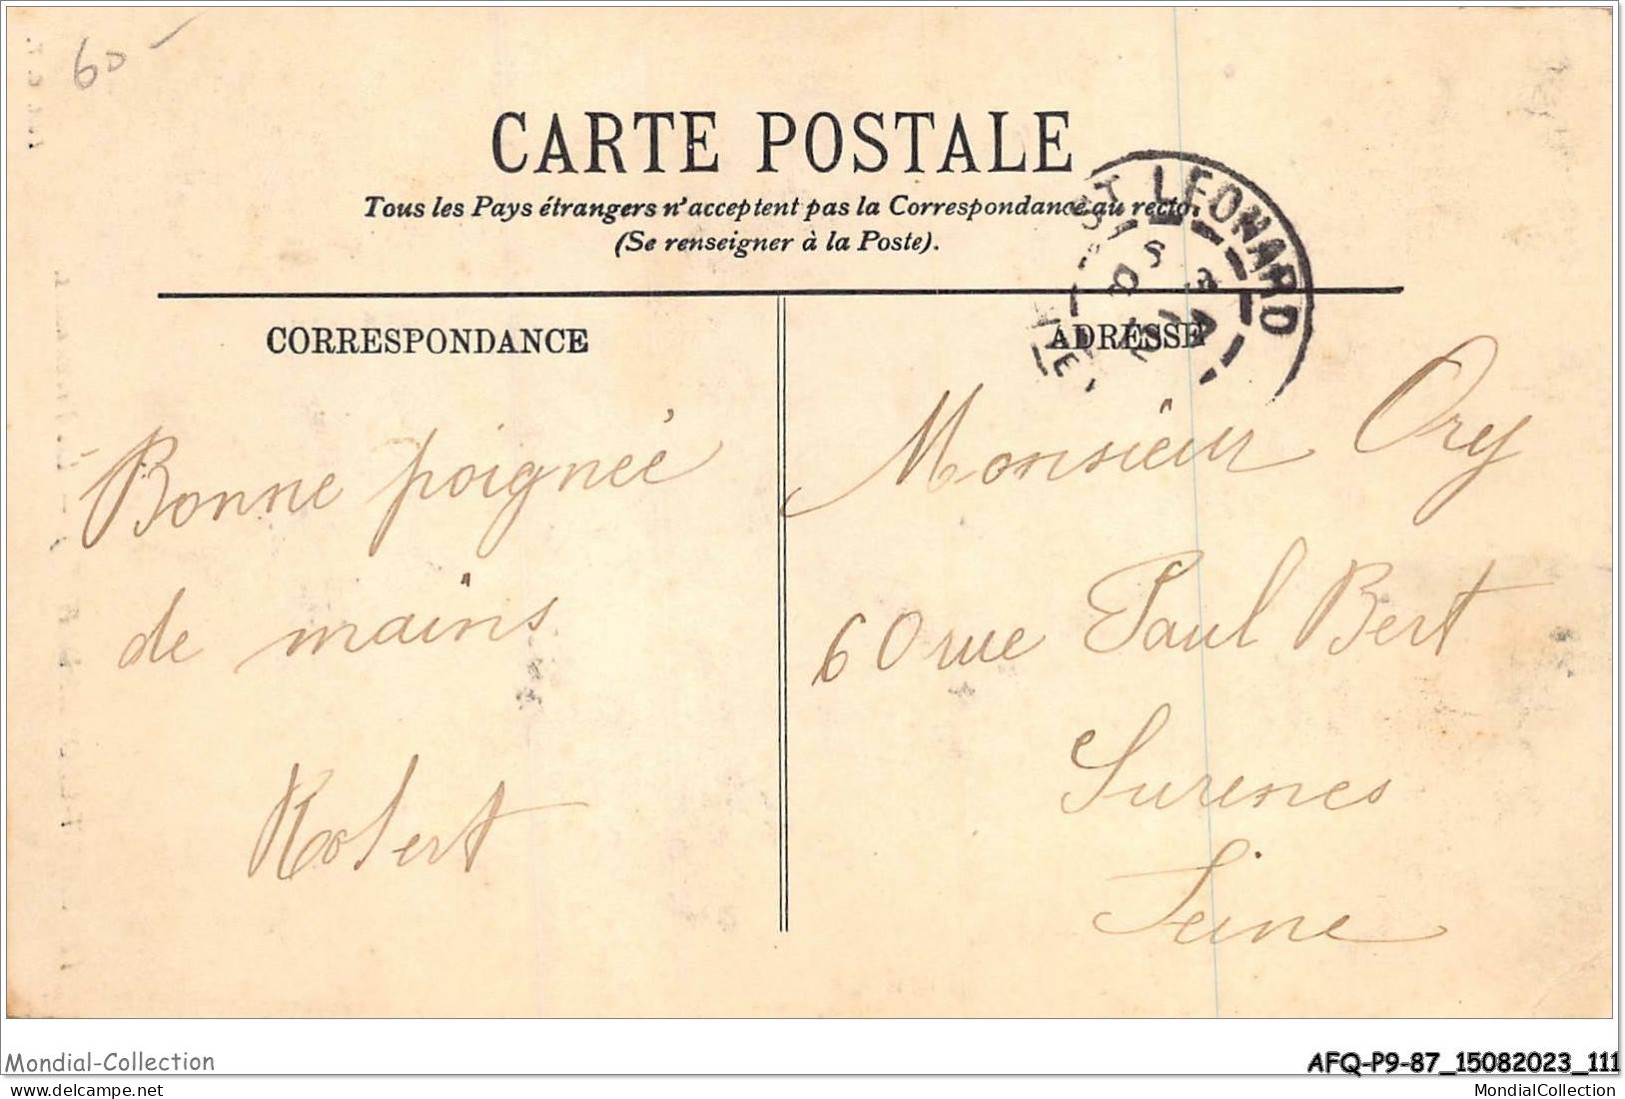 60
CARTE POSTALE
Tous les Pays étrangers n'acceptent pas la Correspondance au recto.
(Se renseigner à la Poste).
ST LEONARD
CORRESPONDANCE
ADRESSE
Bonne poignée
de mains
Robert
Monsieur Ory
60 rue Paul Bert
Surenes
Seine
Mondial-Collection
AFQ-P9-87_15082023_111
www.delcampe.net
MondialCollection